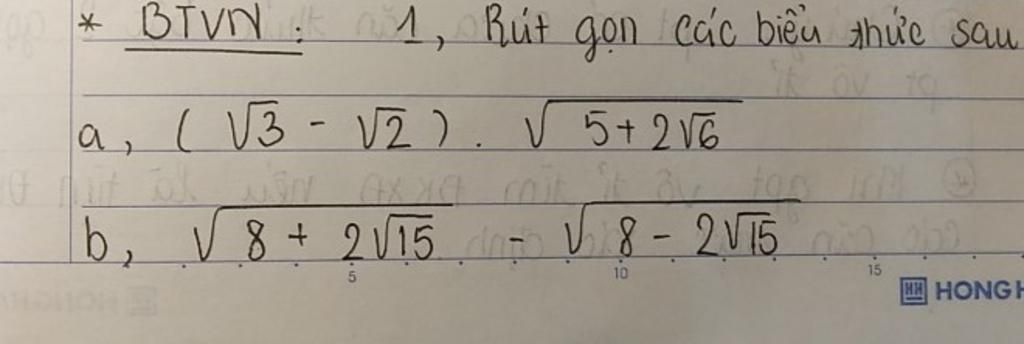 * BTVN: 1, Rút gọn các biểu thức sau
a, (√3 - √2). √(5+2√6)
b, √(8 + 2√15) - √(8 - 2√15)
5 10 15
HONGH